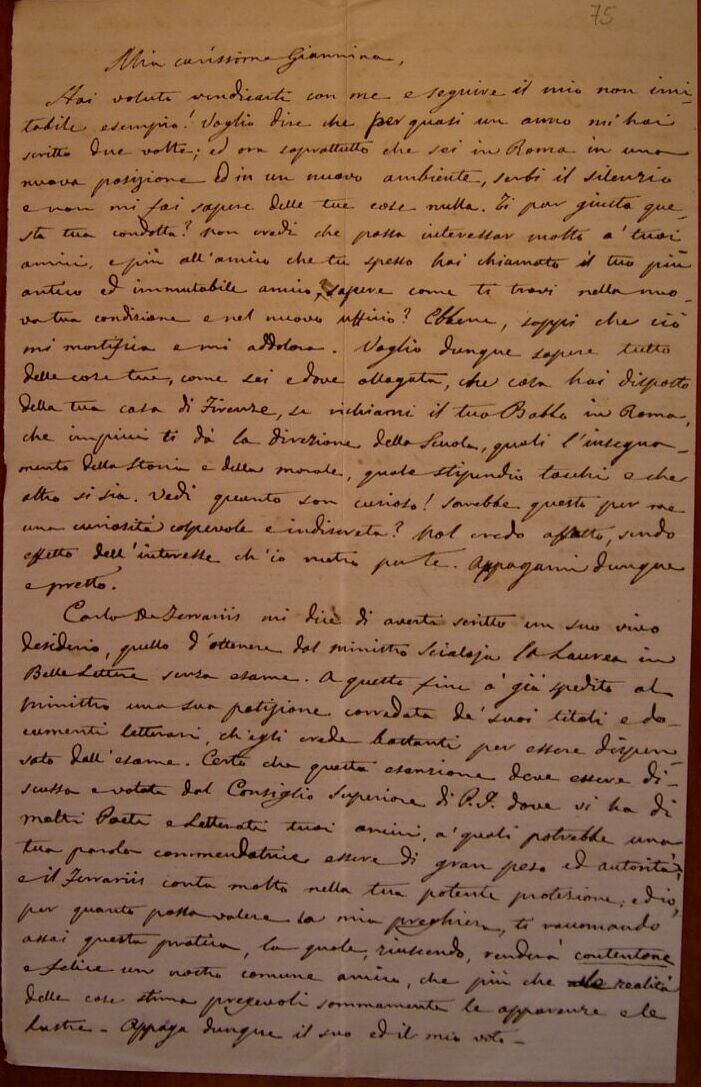 75
Mia carissima Giannina,
Hai voluto vendicarti con me e seguire il mio non imi-
tabile esempio! Voglio dire che per quasi un anno mi hai
scritto due volte; ed ora soprattutto che sei in Roma in una
nuova posizione ed in un nuovo ambiente, serbi il silenzio
e non mi fai sapere delle tue cose nulla. Ti par giusta que-
sta tua condotta? Non credi che possa interessar molto a' tuoi
amici, e più all'amico che tu spesso hai chiamato il tuo più
antico ed immutabile amico, sapere come ti trovi nella nuo-
va tua condizione e nel nuovo uffizio? Ebbene, sappi che ciò
mi mortifica e mi addolora. Voglio dunque sapere tutto
delle cose tue, come sei e dove allogata, che cosa hai disposto
della tua casa di Firenze, se richiami il tuo Babbo in Roma,
che impicci ti dà la direzione della Scuola, quali l'insegna-
mento della Storia e della morale, quale stipendio tocchi e che
altro si sia. Vedi quanto son curioso! Sarebbe questa per me
una curiosità colpevole e indiscreta? Nol credo affatto, sendo
effetto dell'interesse ch'io metro per te. Appagami dunque
e presto.
Carlo De Ferrariis mi dice di averti scritto un suo vivo
desiderio, quello d'ottenere dal ministro Scialoja la Laurea in
Belle Lettere senza esame. A questo fine à già spedito al
Ministro una sua petizione corredata de' suoi titoli e do-
cumenti letterari, ch'egli crede bastanti per essere dispen-
sato dall'esame. Certo che questa esenzione deve essere di-
scussa e votata dal Consiglio Superiore di P. I. dove vi ha di
molti Poeti e Letterati tuoi amici, a' quali potrebbe una
tua parola commendatrice essere di gran peso ed autorità;
e il Ferrariis conta molto nella tua potente protezione; ed io,
per quanto possa valere la mia preghiera, ti raccomando
assai questa pratica, la quale, riuscendo, renderà contentone
e felice un nostro comune amico, che più che alle realità
delle cose stima pregevoli sommamente le apparenze e le
lustre - Appaga dunque il suo ed il mio voto -